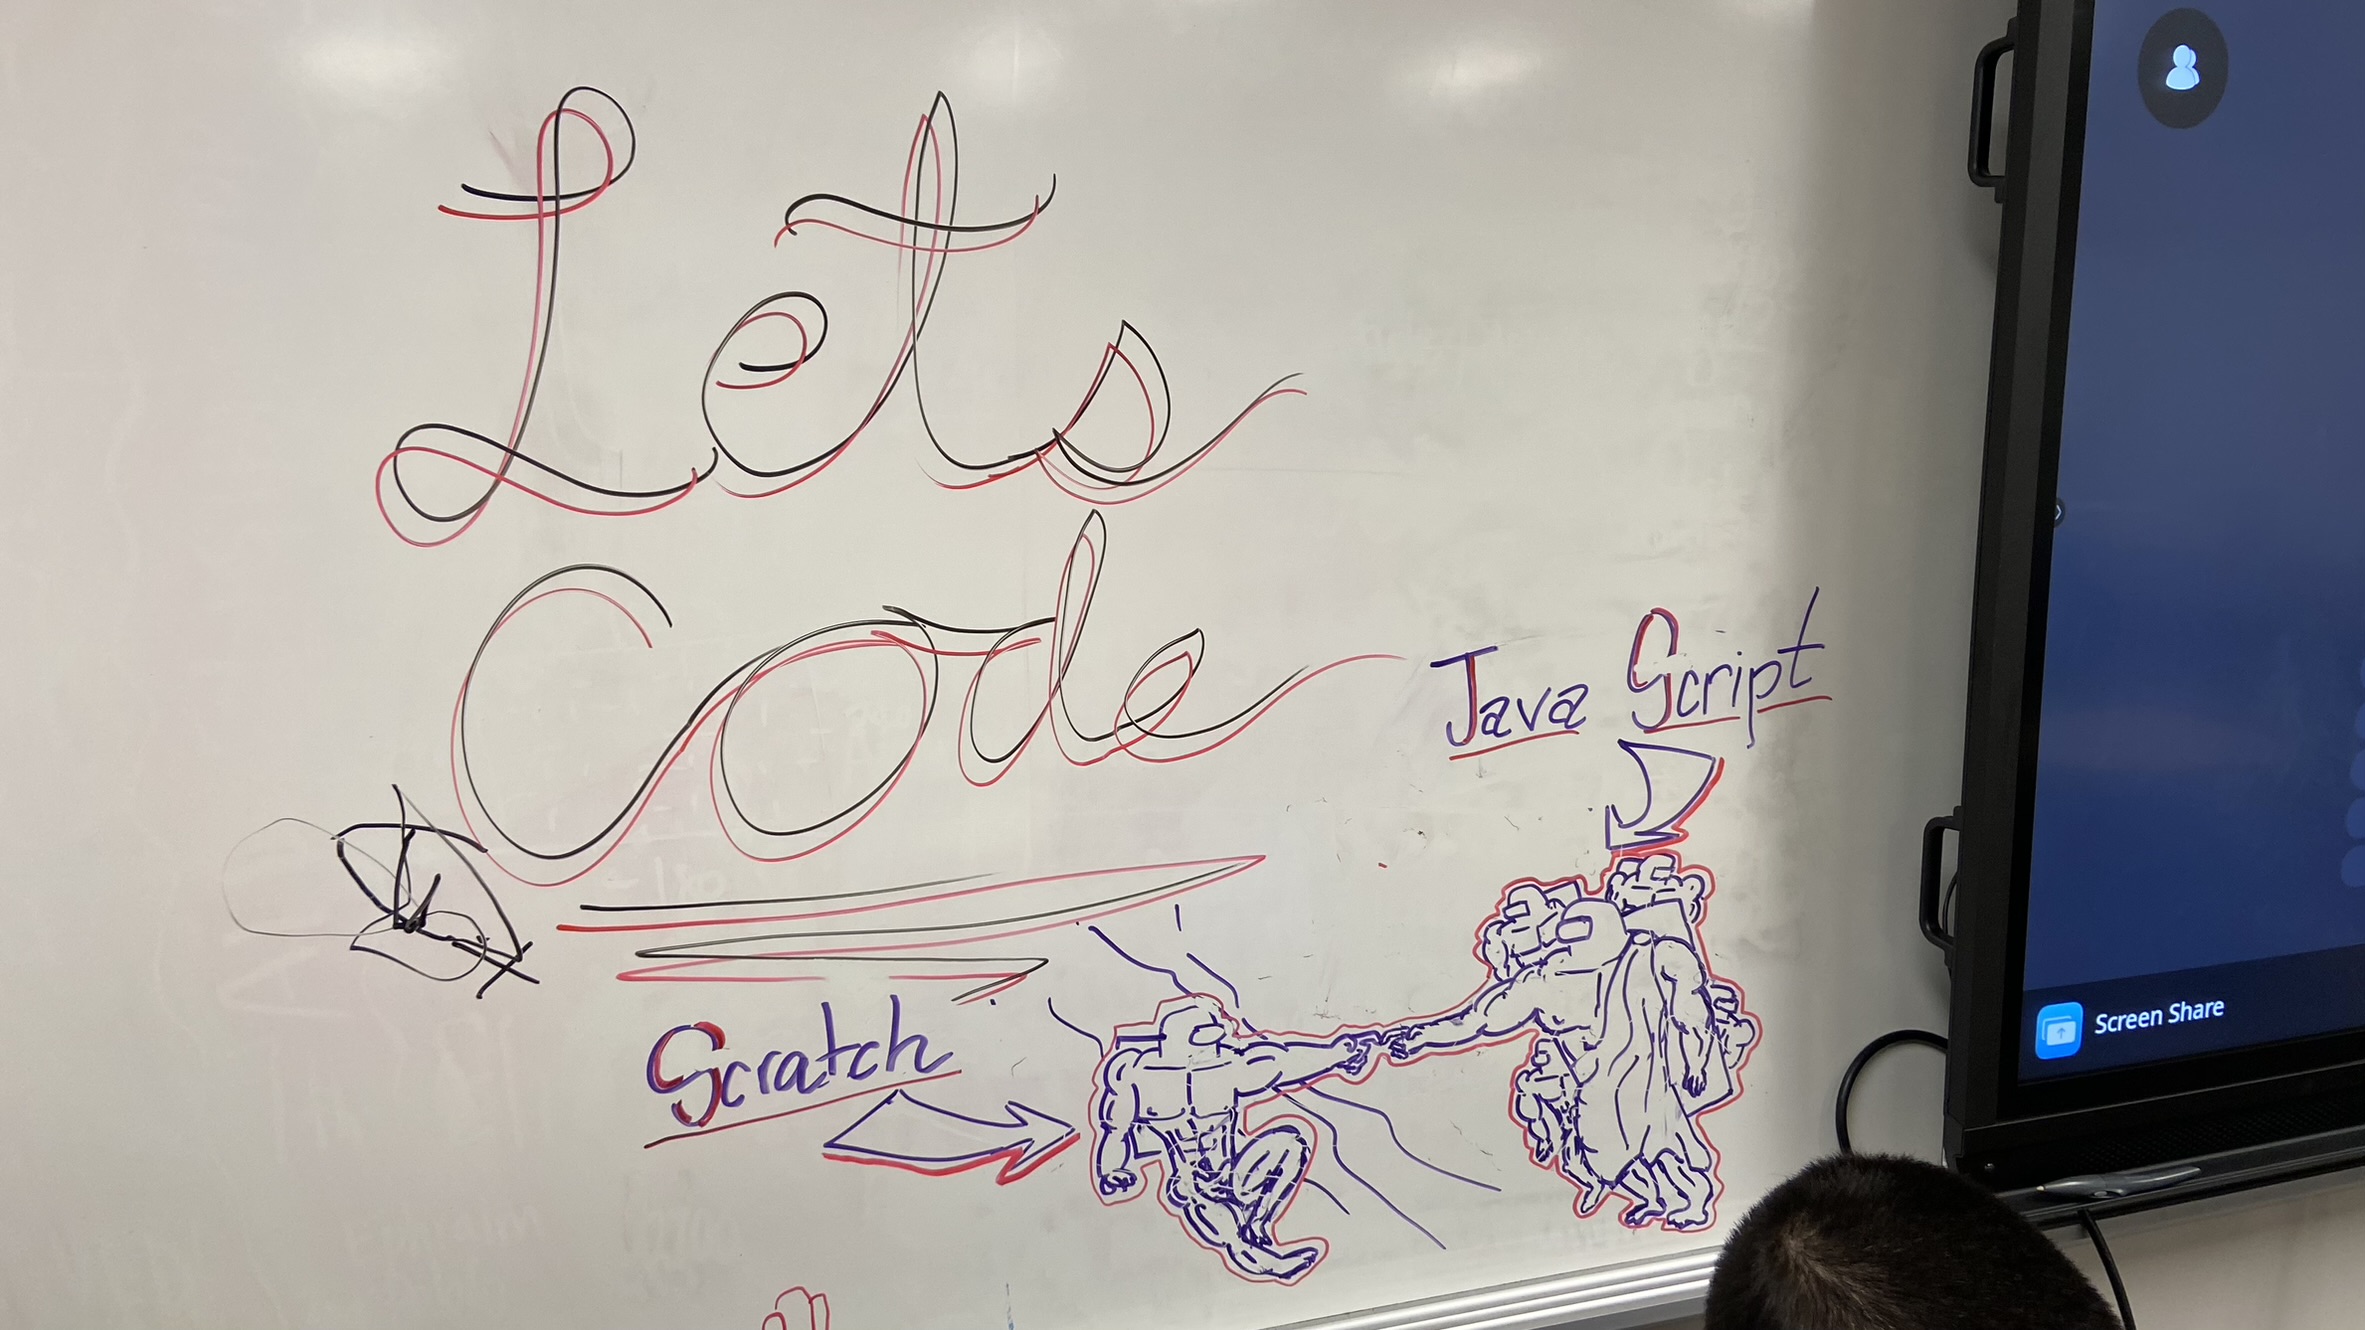 Lets
Code
Java Script
Scratch
Screen Share